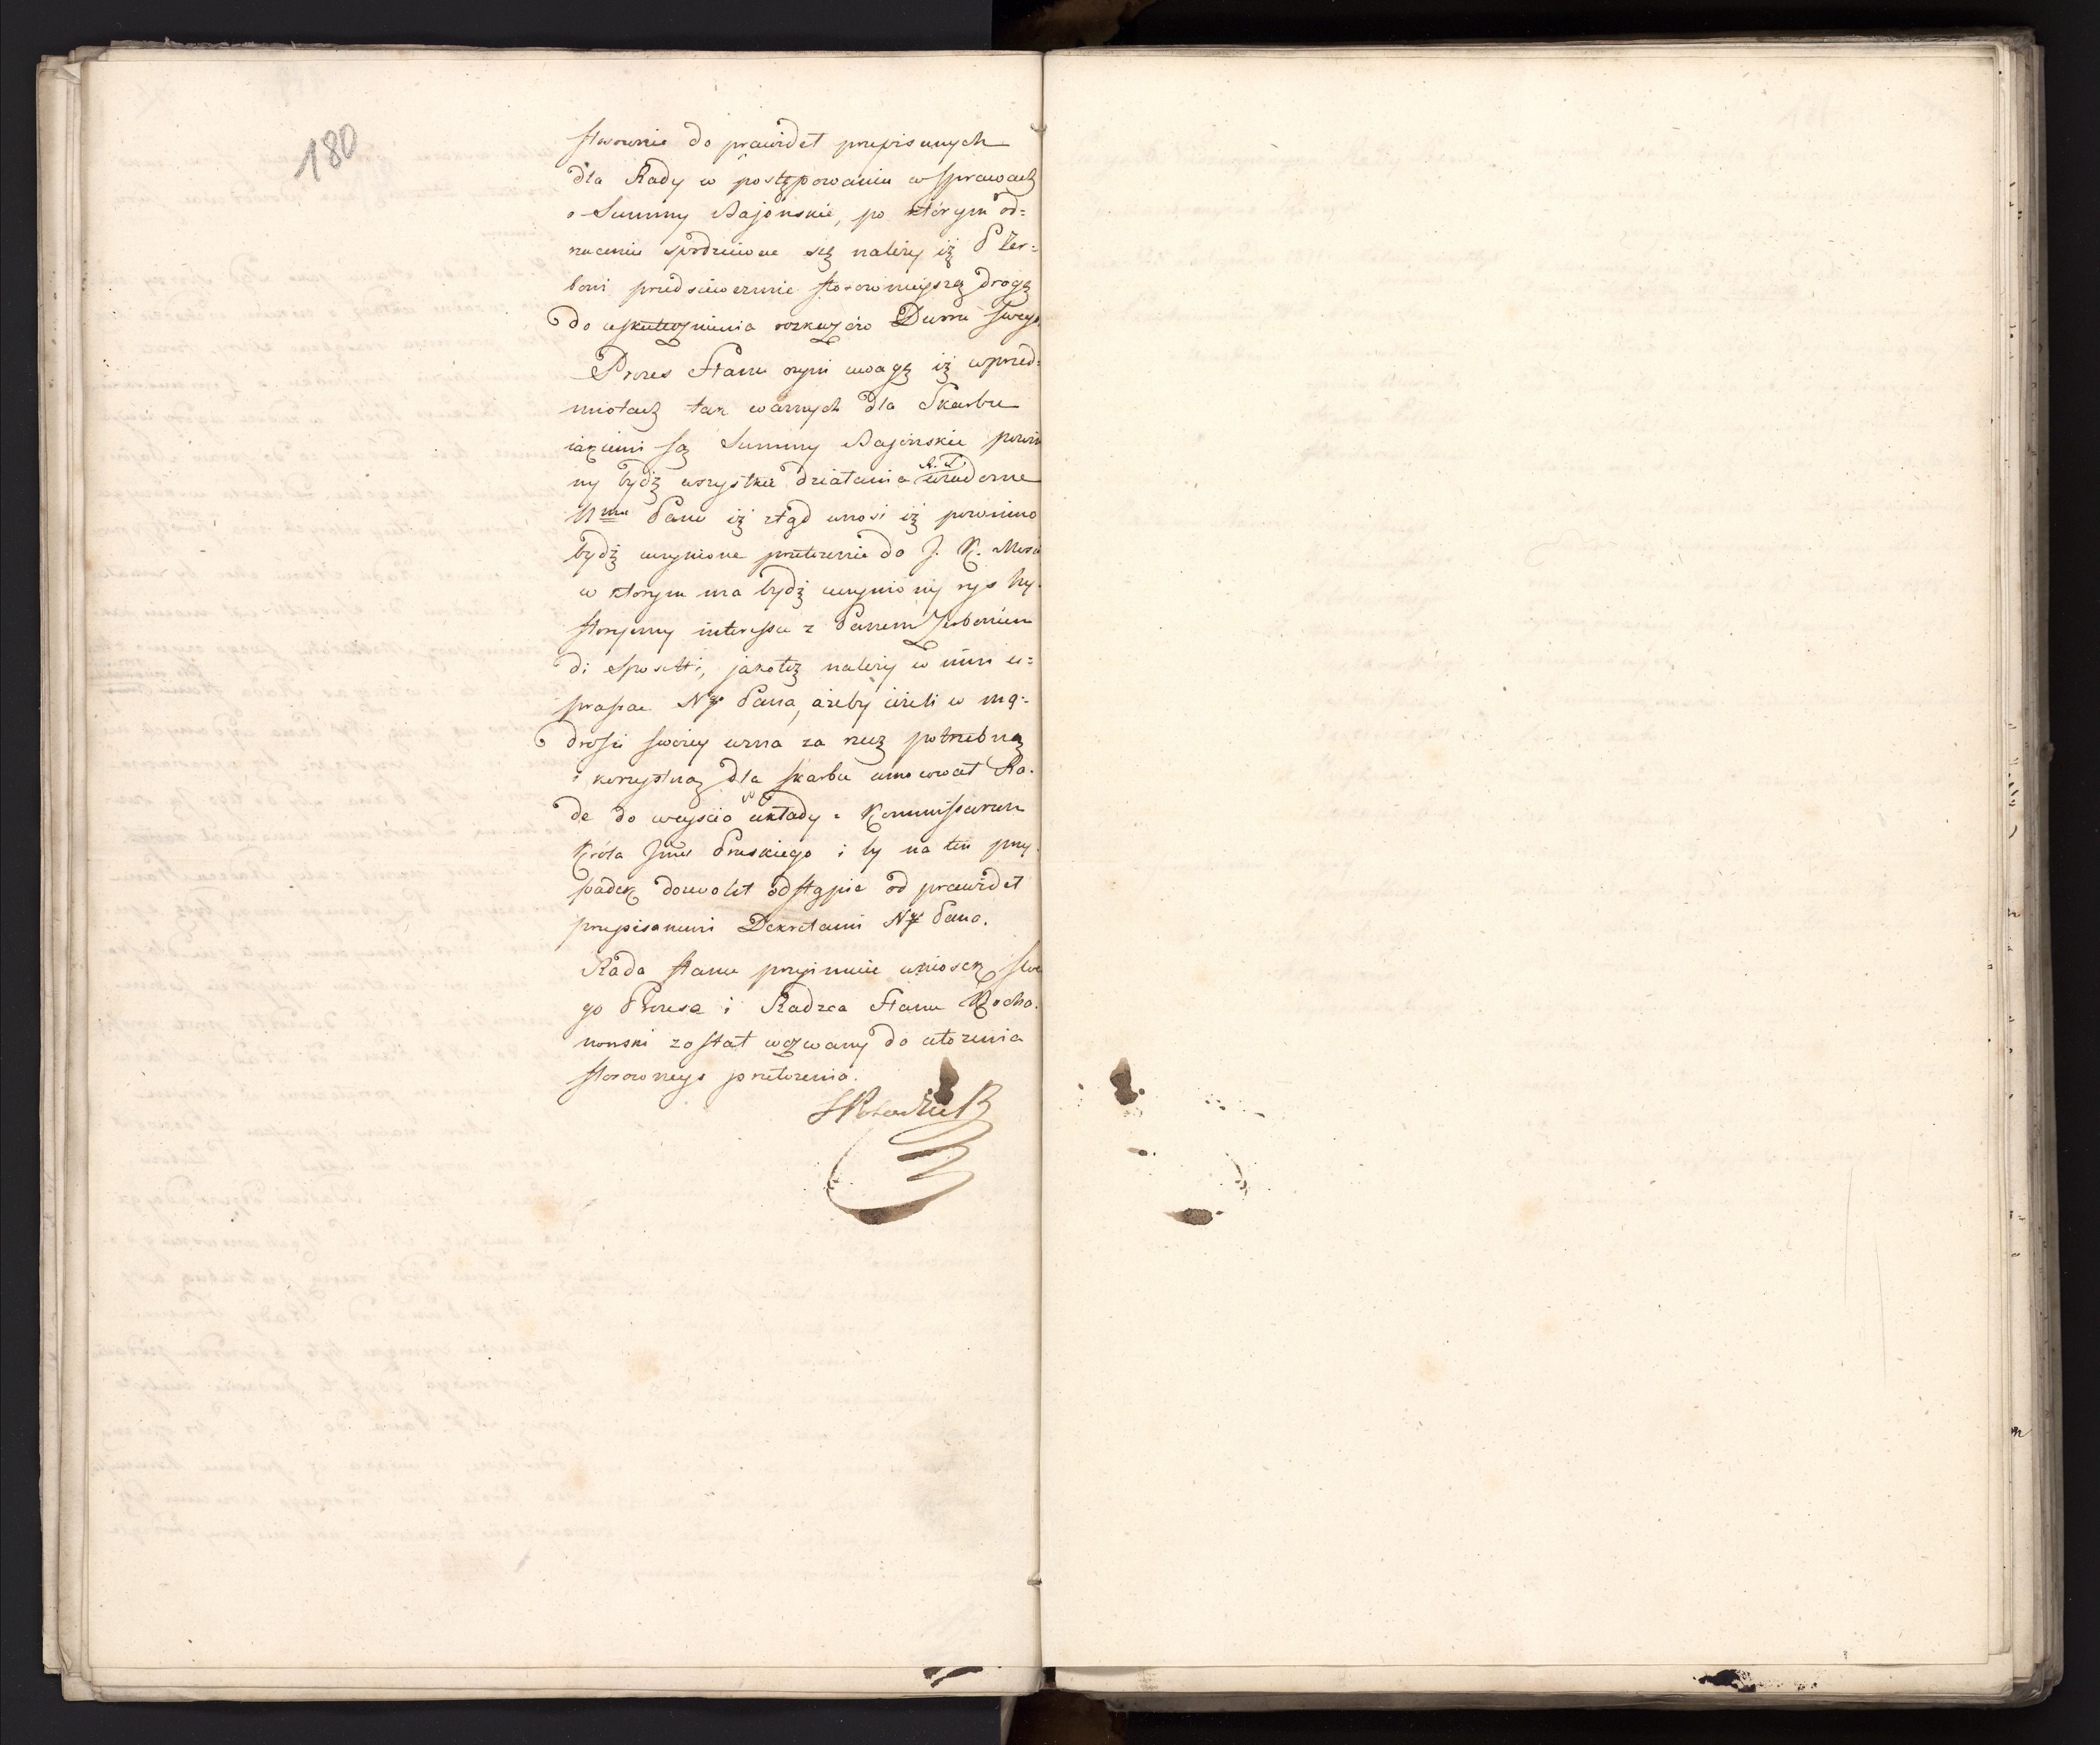 180
stosownie do prawideł przepisanych
dla Rady w postępowaniu w sprawach
o Summy Bajońskie, po którym od=
rzuceniu spodziewac się należy iż P Zer=
boni przedsieweźmie stosowniejszą drogę
do uskutecznienia rozkazów Dworu swego.
Prezes Stanu czyni uwagę iż w przed=
miotach tak ważnych dla Skarbu
iakiemi są Summy Bajońskie powin
ny bydź wszystkie działania R. S. wiadome
Nmu Panu iż ztąd wnosi iż powinno
bydź uczynione przełożenie do J. K. Mości
w ktorym ma bydź uczyniony rys hy=
storyczny interessu z Panem Zerbonim
di Sposetti, jakoteż należy w nim u=
praszać Ngo Pana, ażeby ieżeli w mą=
drości swoiey uzna za rzecz potrzebną
i korzystną dla skarbu umocował Ra=
de do weyścia w układy z Kommissarzem
Króla Jmci Pruskiego i by na ten przy
padek dozwolił odstąpić od prawideł
przepisanemi Dekretami Ngo Pana.
Rada stanu przyimuie wniosek swe
go Prezesa i Radzca Stanu Kocha=
nowski został wezwany do ułożenia
stosownego przełożenia.